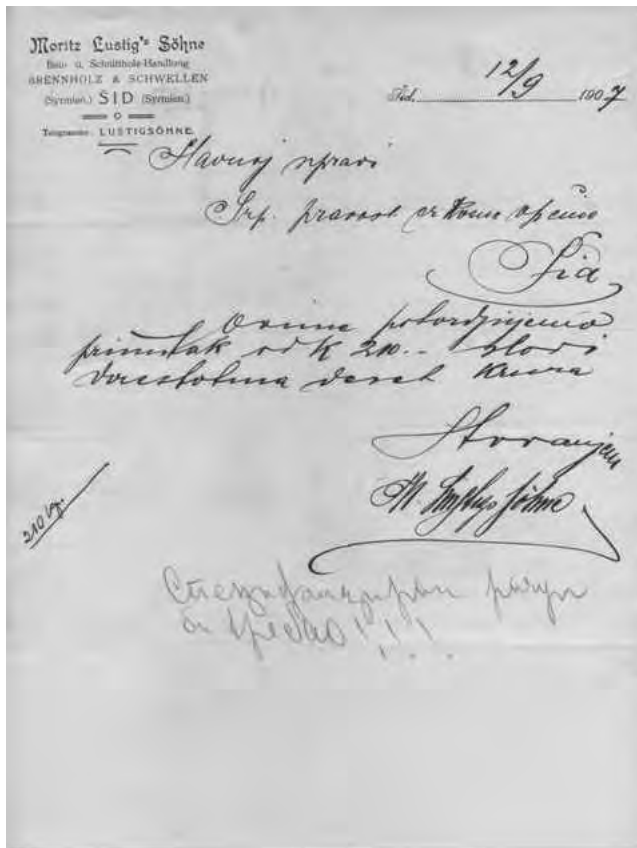 Moritz Lustig's Söhne
Bau- u. Schnittholz-Handlung
BRENNHOLZ & SCHWELLEN
(Syrmien.) SID (Syrmien.)
Telegramme: LUSTIGSÖHNE.
Šid, 12/9 1907
Slavnoj upravi
Srp. pravosl crkvene općine
Šid
Ovime potvrdjujemo
primitak od K 210.- slovi
dvestotina deset kruna
Štovanjem
M. Lustigs Söhne
210 kr.
рачун
би требао!!!